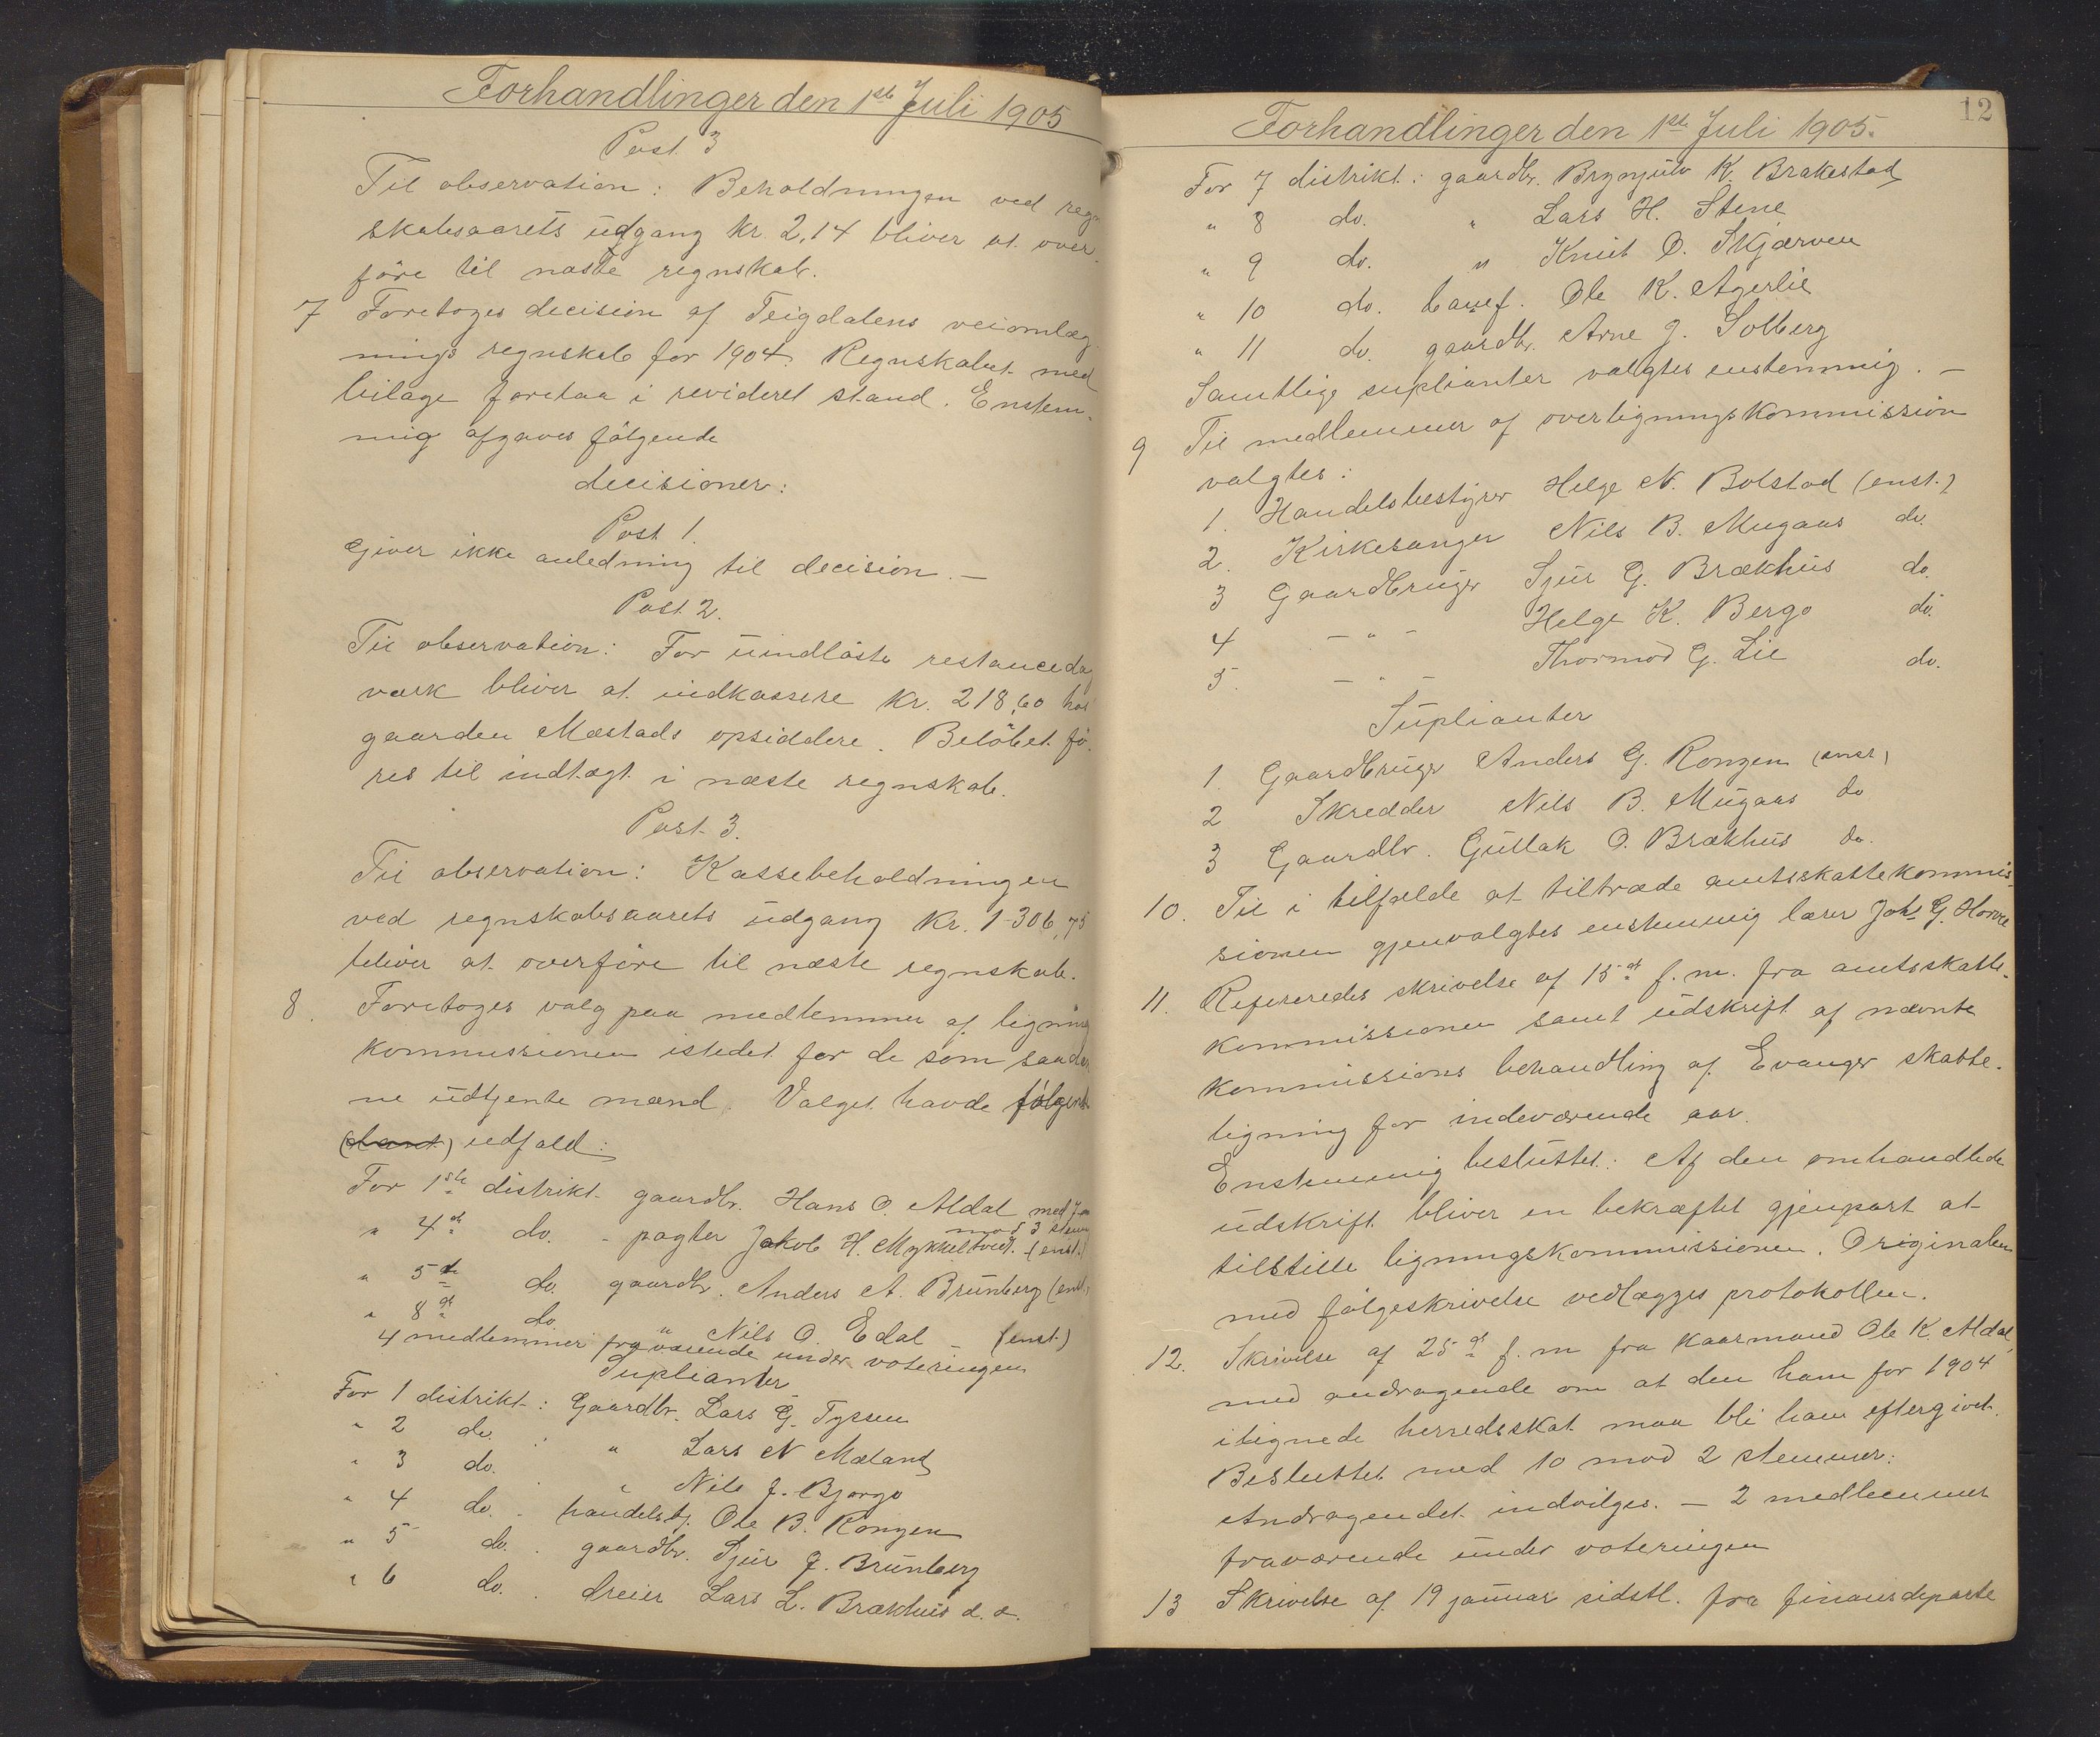 Forhandlinger den 1ste Juli 1905
Post 3
Til observation: Beholdningen ved regn
skabsaarets udgang Kr. 2,14 bliver at over-
føre til næste regnskab.
7 Foretoges decision af Teigdalens veiomlæg-
nings regnskab for 1904. Regnskabet med
bilage forelaa i revideret stand. Enstem-
mig afgaves følgende
decisioner:
Post 1.
Giver ikke anledning til decision. —
Post 2.
Til observation: For uindløste restancedag
værk bliver at indkassere Kr. 218,60 hos
gaarden Mæstads opsiddere. Beløbet fø-
res til indtægt i næste regnskab.
Post 3.
Til observation: Kassebeholdningen
ved regnskabsaarets udgang Kr. 1306,75
bliver at overføre til næste regnskab.
8. Foretoges valg paa medlemmer af ligning
kommissionen istedet for de som saadan
ne udtjente mænd. Valget havde følgende
(havt) udfald:
For 1ste distrikt gaardbr. Hans O. Aldal med
mod 3 stem
" 4de do. - pagter Jakob H. Mykkeltvedt. (enst.)
" 5te do. gaardbr. Anders A. Brunberg (enst.)
" 8de do. " Nils O. Edal (enst.)
4 medlemmer fraværende under voteringen
Suplianter
For 1 distrikt: Gaardbr. Lars G. Tyssen
" 2 do. : " Lars N Mæland
" 3 do. . " Nils J. Bjørgo
" 4 do. . handelsbj. Ole B. Rongen
" 5 do. . gaardbr. Sjur J. Brunberg
" 6 do. . dreier Lars L. Brækhus d. æ.
12
Forhandlinger den 1ste Juli 1905.
For 7 distrikt: gaardbr. Brynjulv K. Brakestad
" 8 do. " Lars H. Stene
" 9 do. " Knut O. Skjærven
" 10 do. banef. Ole K. Agerlie
" 11 do. gaardbr. Arne J. Solberg
Samtlige suplianter valgtes enstemmig. —
9 Til medlemmer af overligningskommission
valgtes:
1. Handelsbestyrer Helge N. Bolstad (enst.)
2. Kirkesanger Nils B. Mugaas do.
3 Gaardbruger Sjur G. Brækhus do.
4 - " - Helge K. Bergo do.
5. - " - Thormod G. Lie do.
Suplianter
1. Gaardbruger Anders G. Rongen (enst)
2 Skredder Nils B. Mugaas do
3 Gaardbr. Gullak O. Brækhus do.
10. Til i tilfælde at tiltræde amtsskattekommis-
sionen gjenvalgtes enstemmig lærer Johs G. Horvei
11. Refereredes skrivelse af 15de f. m. fra amtsskatte-
kommissionen samt udskrift af nævnte
kommissions behandling af Evanger skatte-
ligning for indeværende aar.
Enstemmig besluttet: Af den omhandlede
udskrift bliver en bekræftet gjenpart at
tilstille ligningskommissionen. Originalen
med følgeskrivelse vedlægges protokollen.
12. Skrivelse af 25de f. m fra kaarmand Ole K. Aldal,
med andragende om at den ham for 1904
ilignede herredsskat maa bli ham eftergivet.
Besluttet med 10 mod 2 stemmer:
Andragendet indvilges. — 2 medlemmer
fraværende under voteringen
13 Skrivelse af 19 januar sidstl. fra finansdeparte